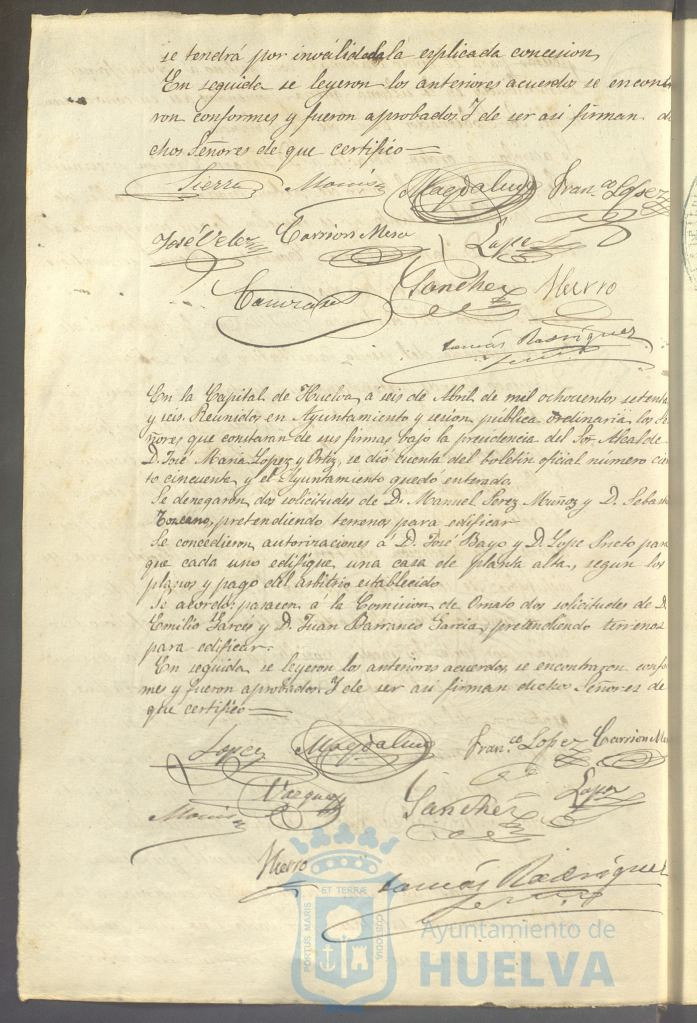 se tendrá por inválidada la esplicada concesion,
En seguida se leyeron los anteriores acuerdos se encontra
ron conformes y fueron aprobados. Y de ser asi firman di
chos Señores de que certifico=
Sierra Magdaleno Fran.co Lopez
José Velez Carrion Mero Lope
Sanchez Hierro
Tomás Rodriguez
En la Capital de Huelva, á seis de Abril de mil ochocientos setenta
y seis. Reunidos en Ayuntamiento y sesion pública ordinaria, los Se
ñores que constaran de sus firmas bajo la presidencia del Sor. Alcalde
D. José Maria Lopez y Ortiz, se dió cuenta del boletin oficial número cien
to cincuenta y el Ayuntamiento quedó enterado.
Se denegaron dos solicitudes de D. Manuel Perez Muñoz y D. Sebastian
Toscano, pretendiendo terrenos para edificar
Se concedieron autorizaciones á D. José Bayo y D. Lope Prieto para
que cada uno edifique una casa de planta alta, segun los
planos y pago del arbitrio establecido.
Se acordó: pasasen á la Comision de Ornato dos solicitudes de D.
Emilio Garces y D. Juan Barranco Garcia, pretendiendo terrenos
para edificar.
En seguida se leyeron los anteriores acuerdos, se encontraron confor
mes y fueron aprobados. Y de ser asi firman dichos Señores de
que certifico=
Lopez Magdaleno Fran.co Lopez Carrion Mero
Vazquez Sanchez Lope
Hierro Tomás Rodriguez
PORTUS MARIS ET TERRÆ CUSTODIA
Ayuntamiento de
HUELVA